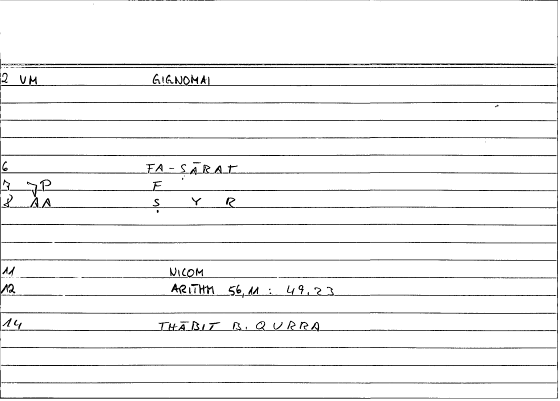 2 VM GIGNOMAI
6 FA-ṢĀRAT
7 JP F
8 AA Ṣ Y R
11 NICOM
12 ARITHM 56,11 : 49,23
14 THĀBIT B. QURRA